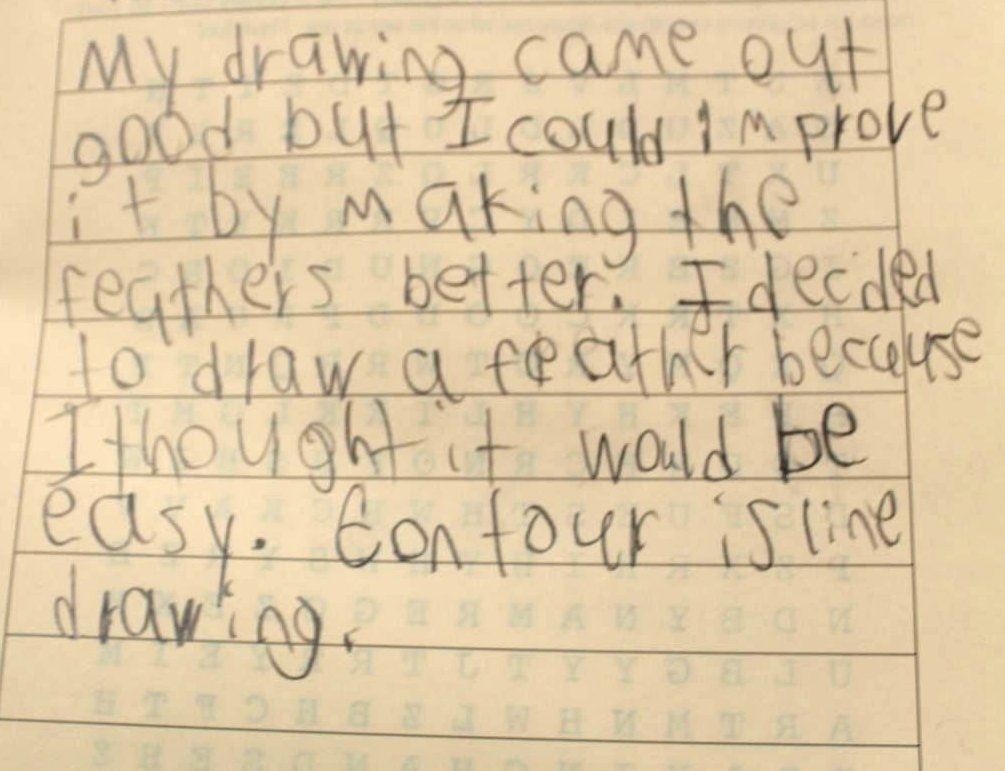 My drawing came out
good but I could improve
it by making the
feathers better. I decided
to draw a feather because
I thought it would be
easy. Contour is line
drawing.